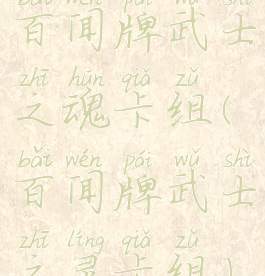 bǎi wén pái wǔ shì
百闻牌武士
zhī hún qiǎ zǔ
之魂卡组(
bǎi wén pái wǔ shì
百闻牌武士
zhī líng qiǎ zǔ
之灵卡组)